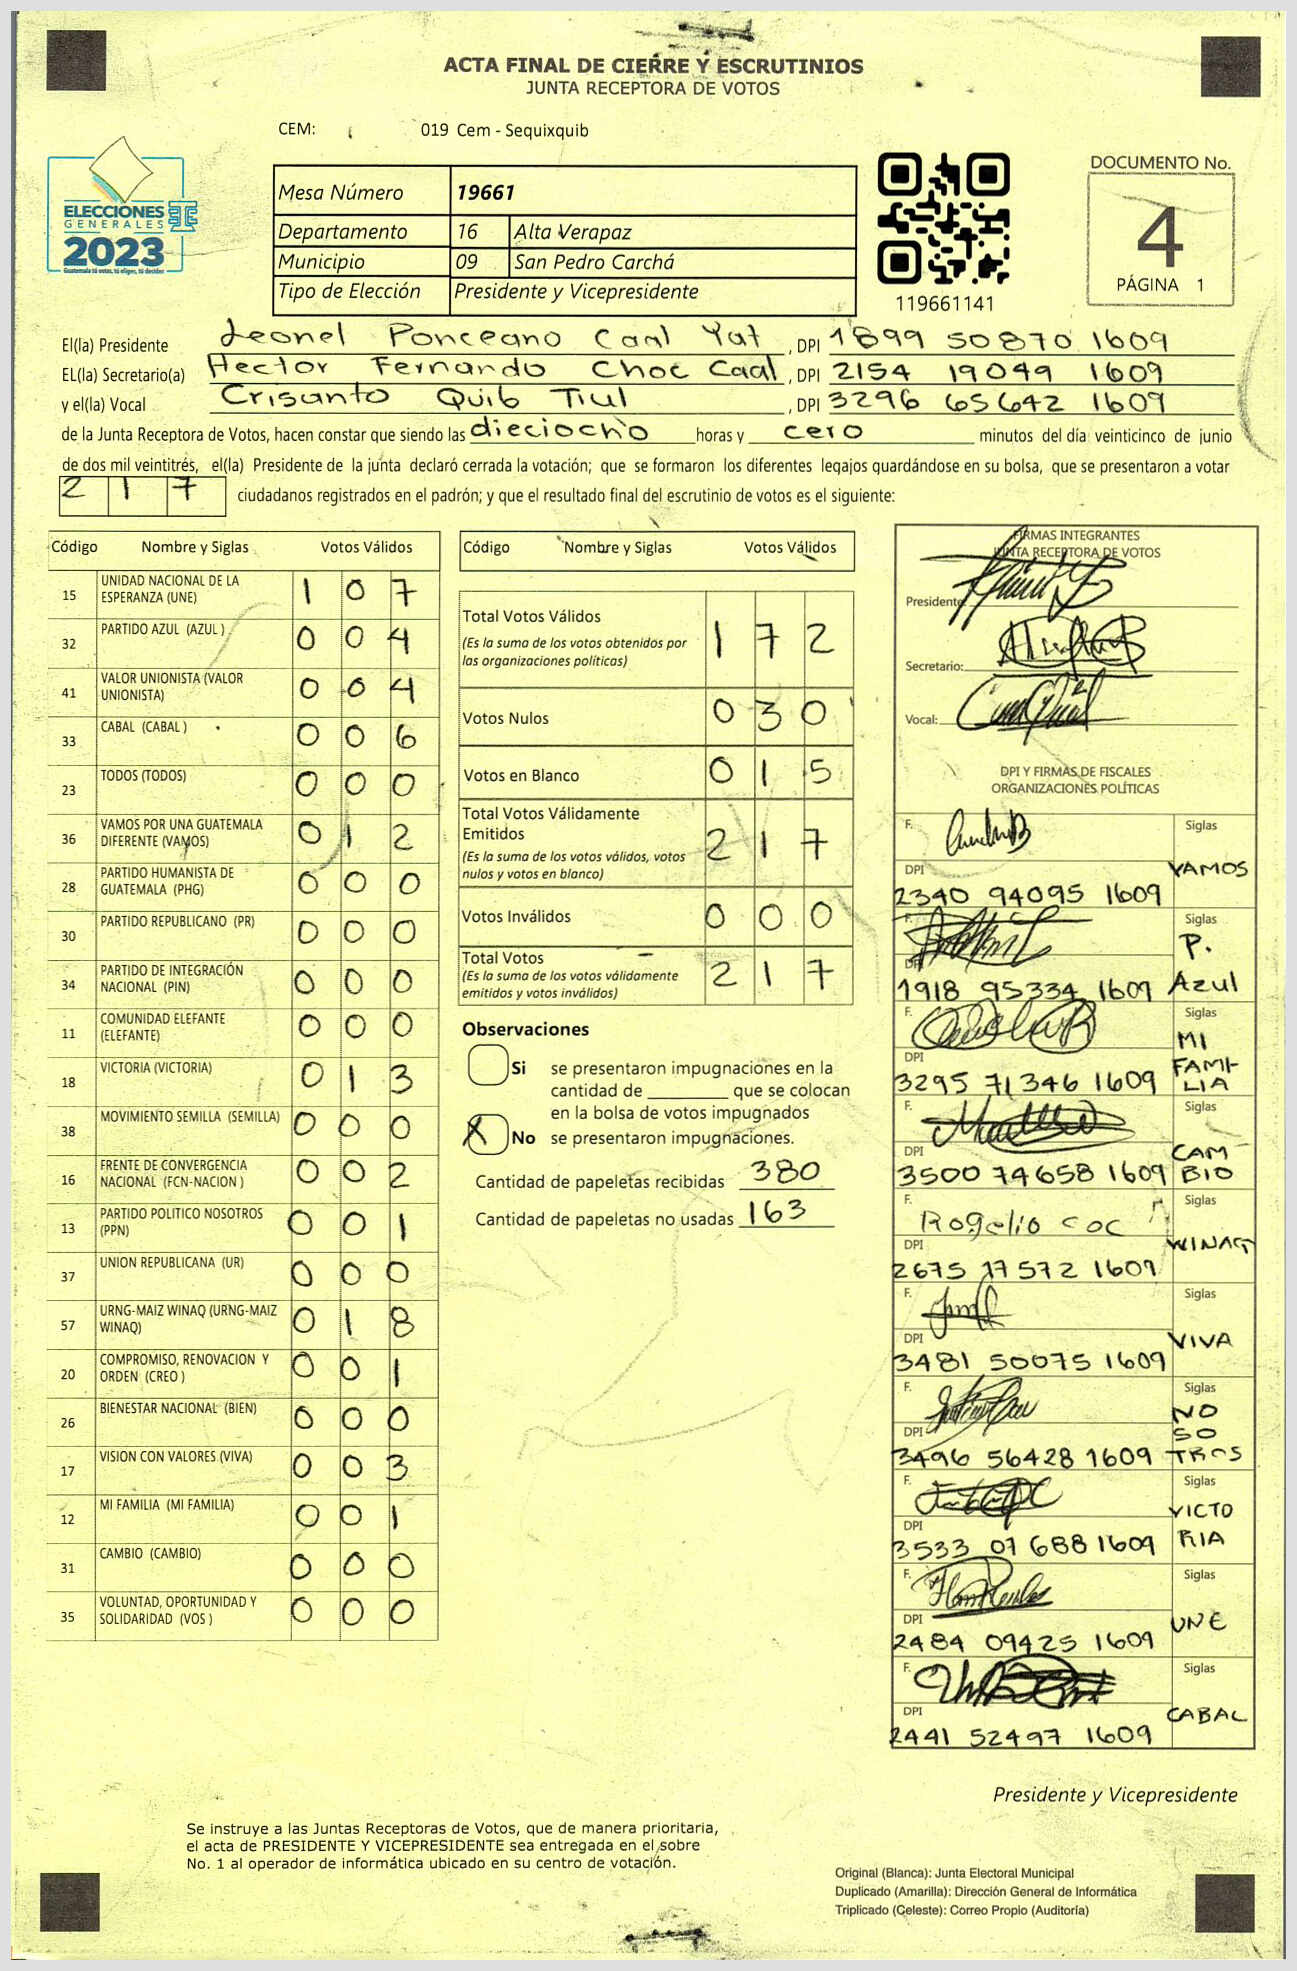 ACTA FINAL DE CIERRE Y ESCRUTINIOS
JUNTA RECEPTORA DE VOTOS
CEM: 019 Cem - Sequixquib
ELECCIONES
GENERALES
2023
Guatemala tú votas, tú eliges, tú decides
Mesa Número 19661
Departamento 16 Alta Verapaz
Municipio 09 San Pedro Carchá
Tipo de Elección Presidente y Vicepresidente
119661141
DOCUMENTO No.
4
PÁGINA 1
El(la) Presidente Leonel Ponceano Caal Yat , DPI 1899 50870 1609
EL(la) Secretario(a) Hector Fernando Choc Caal , DPI 2154 19049 1609
y el(la) Vocal Crisanto Quib Tiul , DPI 3296 65642 1609
de la Junta Receptora de Votos, hacen constar que siendo las dieciocho horas y cero minutos del día veinticinco de junio
de dos mil veintitrés, el(la) Presidente de la junta declaró cerrada la votación; que se formaron los diferentes legajos guardándose en su bolsa, que se presentaron a votar
217 ciudadanos registrados en el padrón; y que el resultado final del escrutinio de votos es el siguiente:
Código Nombre y Siglas Votos Válidos
15 UNIDAD NACIONAL DE LA ESPERANZA (UNE) 1 0 7
32 PARTIDO AZUL (AZUL ) 0 0 4
41 VALOR UNIONISTA (VALOR UNIONISTA) 0 0 4
33 CABAL (CABAL ) 0 0 6
23 TODOS (TODOS) 0 0 0
36 VAMOS POR UNA GUATEMALA DIFERENTE (VAMOS) 0 1 2
28 PARTIDO HUMANISTA DE GUATEMALA (PHG) 0 0 0
30 PARTIDO REPUBLICANO (PR) 0 0 0
34 PARTIDO DE INTEGRACIÓN NACIONAL (PIN) 0 0 0
11 COMUNIDAD ELEFANTE (ELEFANTE) 0 0 0
18 VICTORIA (VICTORIA) 0 1 3
38 MOVIMIENTO SEMILLA (SEMILLA) 0 0 0
16 FRENTE DE CONVERGENCIA NACIONAL (FCN-NACION ) 0 0 2
13 PARTIDO POLITICO NOSOTROS (PPN) 0 0 1
37 UNION REPUBLICANA (UR) 0 0 0
57 URNG-MAIZ WINAQ (URNG-MAIZ WINAQ) 0 1 8
20 COMPROMISO, RENOVACION Y ORDEN (CREO ) 0 0 1
26 BIENESTAR NACIONAL (BIEN) 0 0 0
17 VISION CON VALORES (VIVA) 0 0 3
12 MI FAMILIA (MI FAMILIA) 0 0 1
31 CAMBIO (CAMBIO) 0 0 0
35 VOLUNTAD, OPORTUNIDAD Y SOLIDARIDAD (VOS ) 0 0 0
Código Nombre y Siglas Votos Válidos
Total Votos Válidos 1 7 2
(Es la suma de los votos obtenidos por
las organizaciones políticas)
Votos Nulos 0 3 0
Votos en Blanco 0 1 5
Total Votos Válidamente
Emitidos 2 1 7
(Es la suma de los votos válidos, votos
nulos y votos en blanco)
Votos Inválidos 0 0 0
Total Votos 2 1 7
(Es la suma de los votos válidamente
emitidos y votos inválidos)
Observaciones
Si se presentaron impugnaciones en la
cantidad de ________ que se colocan
en la bolsa de votos impugnados
X No se presentaron impugnaciones.
Cantidad de papeletas recibidas 380
Cantidad de papeletas no usadas 163
FIRMAS INTEGRANTES
JUNTA RECEPTORA DE VOTOS
Presidente:
Secretario:
Vocal:
DPI Y FIRMAS DE FISCALES
ORGANIZACIONES POLÍTICAS
F. Siglas
DPI VAMOS
2340 94095 1609
F. Siglas
DPI P. Azul
1918 95334 1609
F. Siglas
DPI MI FAMI-LIA
3295 71346 1609
F. Siglas
DPI CAMBIO
3500 74658 1609
F. Rogelio coc Siglas
DPI WINAQ
2675 17572 1609
F. Siglas
DPI VIVA
3481 50075 1609
F. Siglas
DPI NOSOTROS
3496 56428 1609
F. Siglas
DPI VICTORIA
3533 07688 1609
F. Siglas
DPI UNE
2484 09425 1609
F. Siglas
DPI CABAL
2441 52497 1609
Presidente y Vicepresidente
Se instruye a las Juntas Receptoras de Votos, que de manera prioritaria,
el acta de PRESIDENTE Y VICEPRESIDENTE sea entregada en el sobre
No. 1 al operador de informática ubicado en su centro de votación.
Original (Blanca): Junta Electoral Municipal
Duplicado (Amarilla): Dirección General de Informática
Triplicado (Celeste): Correo Propio (Auditoría)